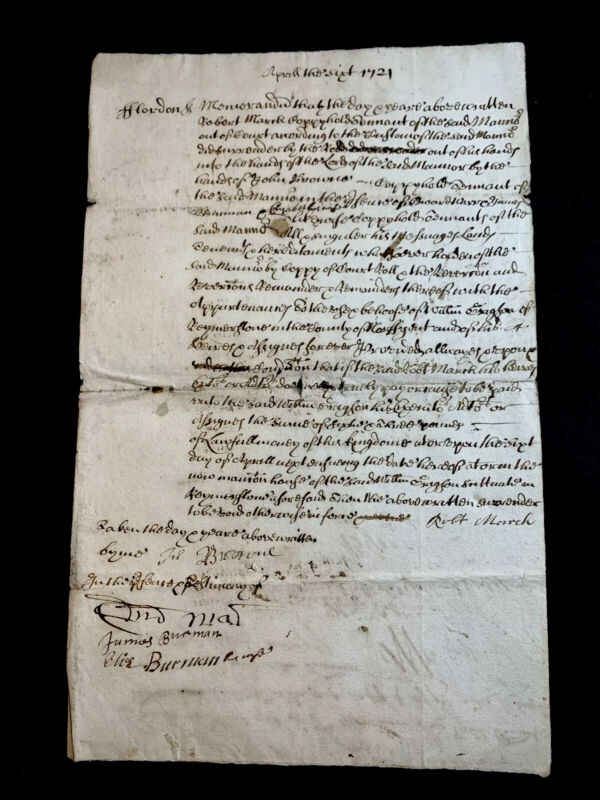 Aprill the sixt 1721
Flordon ss Memorandū that the day & yeare above written
Robert March Coppyhold Tennant of the said Mannor
out of Court according to the Custome of the said Mannor
did surrender by the Rodd out of his hands
into the hands of the Lord of the said Mannor by the
hands of John Browne Coppyhold Tennant of
the said Mannor in the presence of Edward & James
Burman &
likewise Coppyhold Tennants of the
said Mannor All & singuler his Messuages Lands
Tenemts & hereditaments whatsoever holden of the
said Mannor by Coppy of Court Roll & the Revercon and
Revercons Remainder & Remainders thereof with the
Appurtenances To the use & behoofe of Willm of
in the County of Norff gent and of his
heires & Assignes for ever Provided allwayes & upon
Condicon that if the said Robt March his heires
doe well & truely pay or cause to be paid
unto the said Willm his Executors or
Assignes the sume of
of Lawfull money of this Kingdome at or upon the sixt
day of Aprill next ensueing the date hereof at or in the
now mansion house of the said Willm scituate in
aforesaid Then the above written surrender
to be void otherwise in force Robt March
Taken the day & yeare above written
by me Browne
In the presence & testimony of
James Burman
Eliz Burman